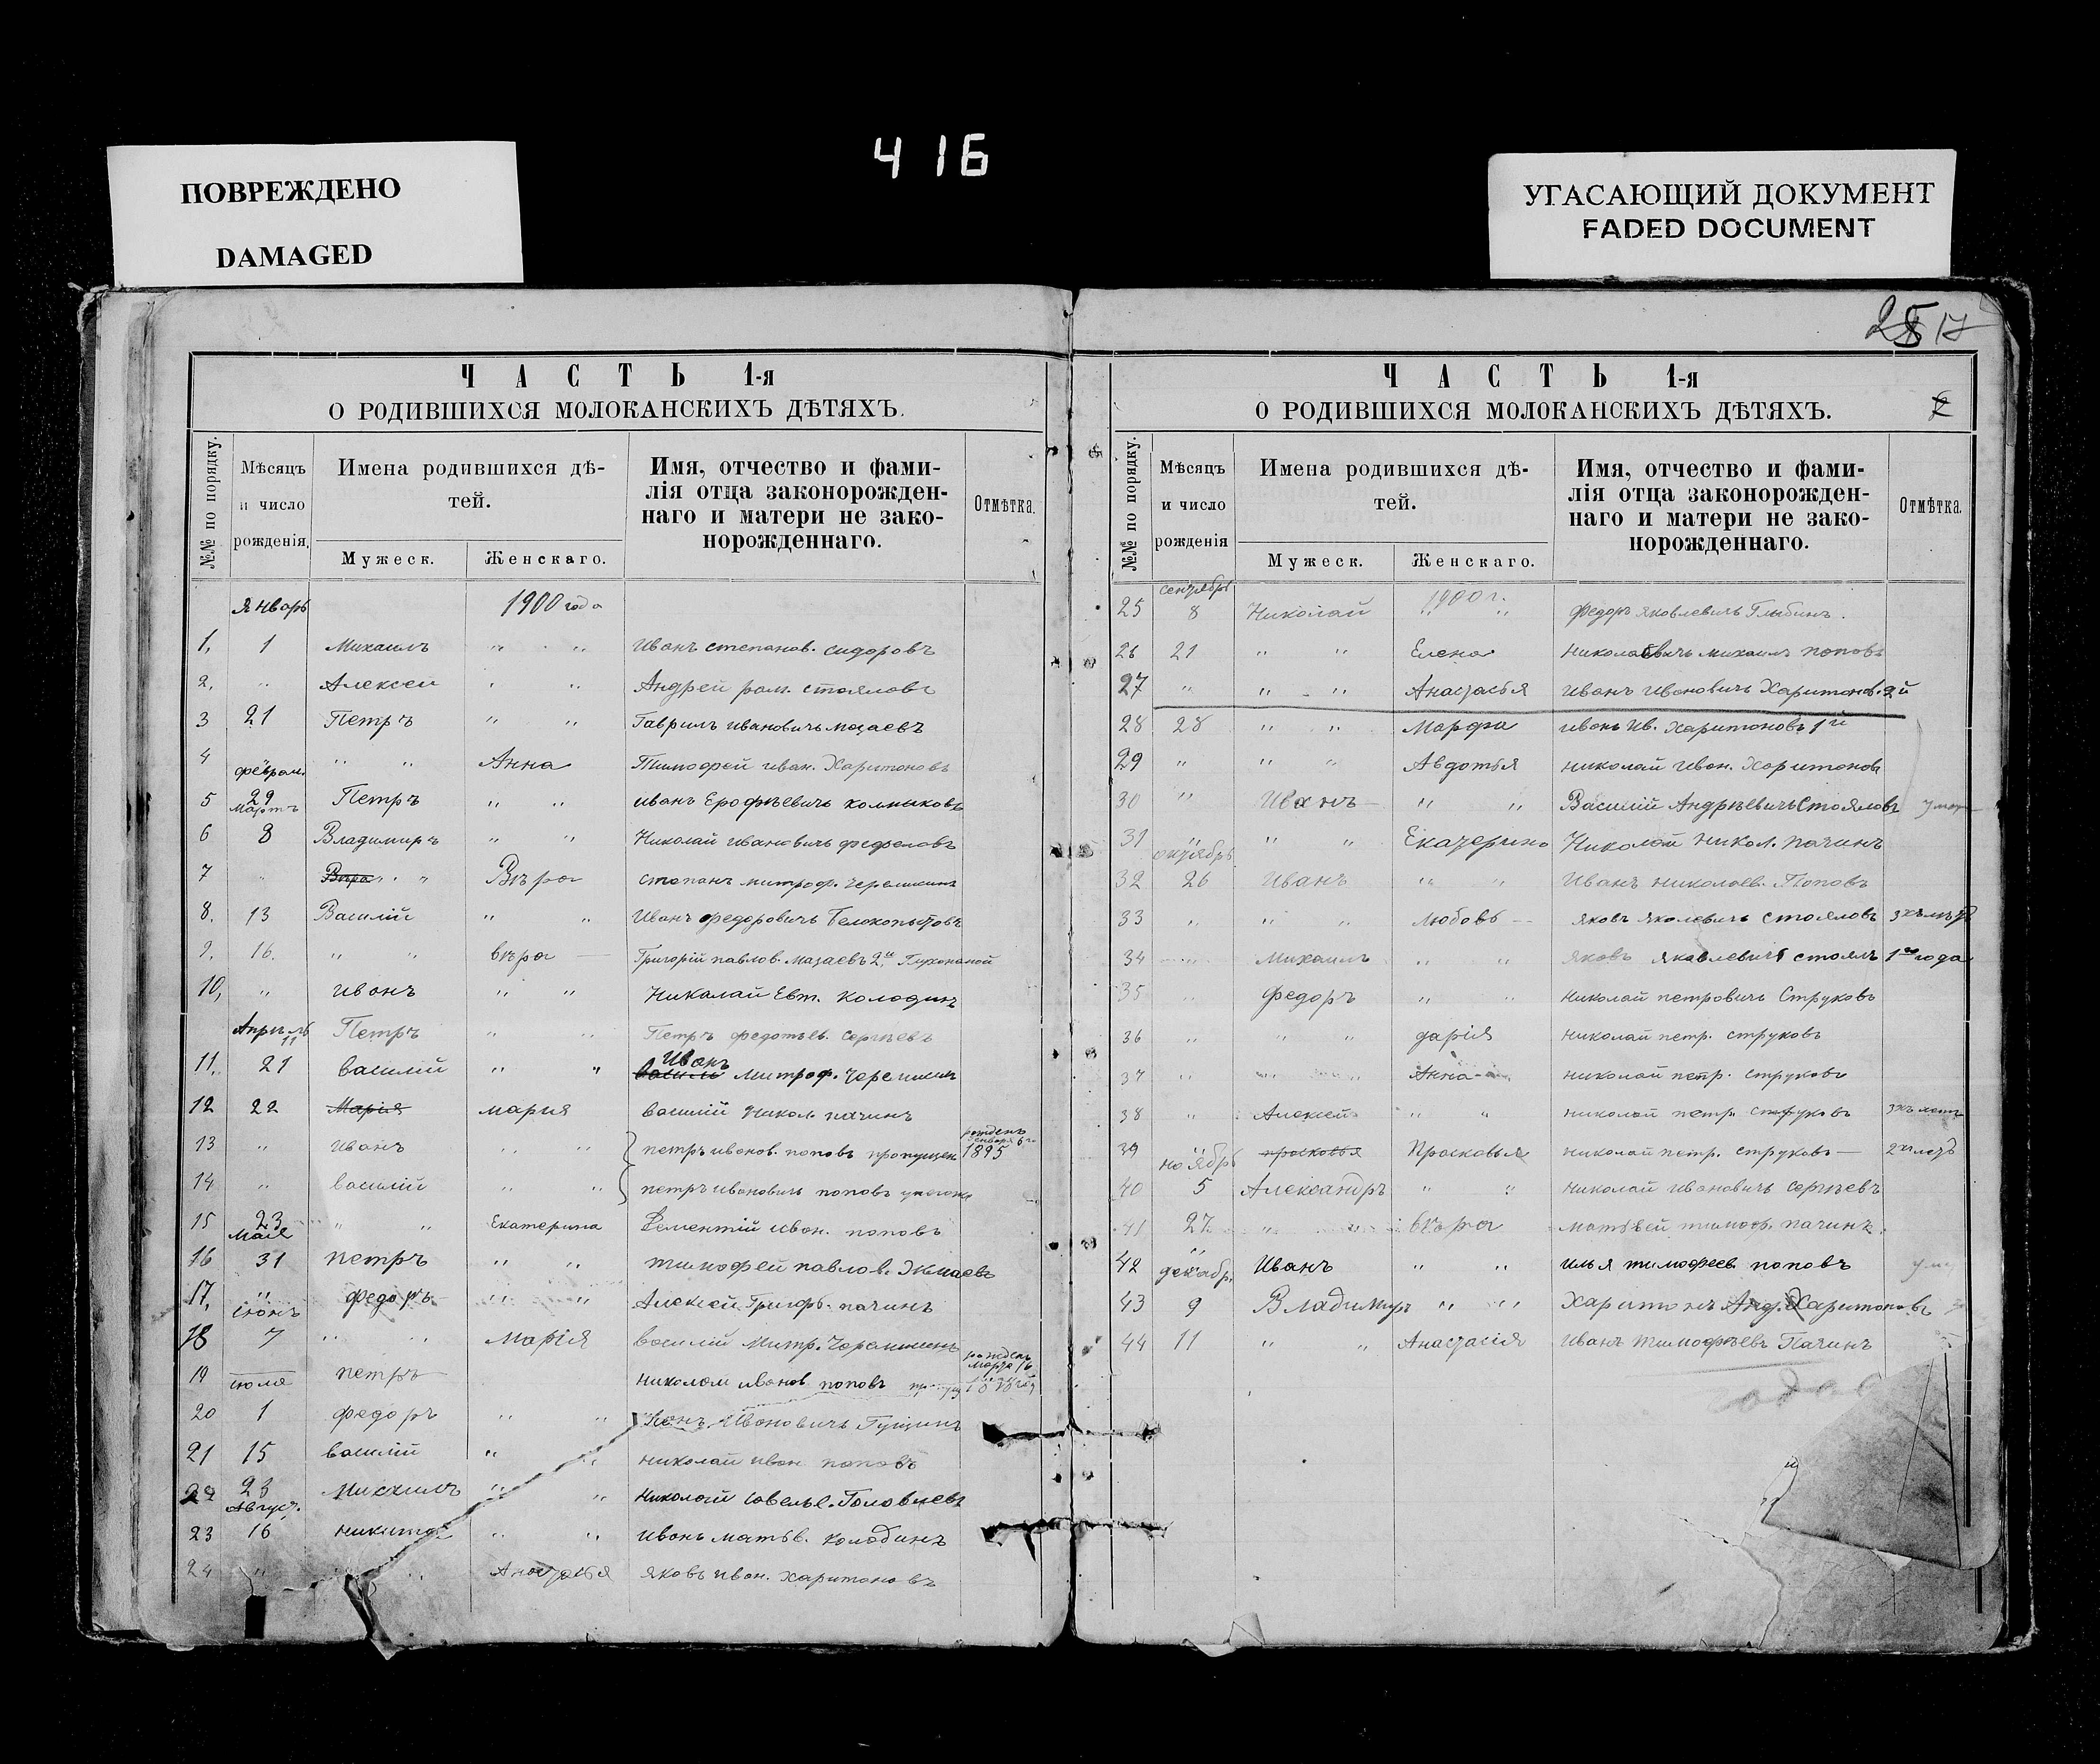 416
ПОВРЕЖДЕНО
DAMAGED
УГАСАЮЩИЙ ДОКУМЕНТ
FADED DOCUMENT
ЧАСТЬ 1-я
О РОДИВШИХСЯ МОЛОКАНСКИХЪ ДѢТЯХЪ.
№№ по порядку.
Мѣсяцъ и число рожденія,
Имена родившихся дѣтей.
Мужеск.
Женскаго.
Имя, отчество и фамилія отца законорожденнаго и матери не законорожденнаго.
Отмѣтка.
январь 1900 года
1, 1 Михаилъ " " Иванъ степанов. сидоровъ
2, " Алексей " " Андрей ром. стояловъ
3 21 Петръ " " Гаврилъ ивановичъ мазаевъ
4 " " " Анна Тимофей иван. Харитоновъ
феврал.
5 29 Петръ " " иванъ Ерофѣевичъ
мартъ
6 8 Владимиръ " " Николай ивановичъ фефеловъ
7 " Вѣра " Вѣра степанъ митроф.
8. 13 Василій " " Иванъ федоровичъ Белокопытовъ
9. 16. " " вѣра Григорій павлов. мазаевъ 2й
10, " иванъ " " Николай Евт. колодинъ
Апрѣль
11 Петръ " " Петръ сергѣевъ
11, 21 василій " " василь Иванъ митроф.
12 22 Марія мария василій никол. пачинъ
13 " иванъ " " петръ иванов. поповъ пропущен 1895
14 " василій " " петръ ивановичъ поповъ
15 23 " " Екатерина иван. поповъ
мая
16 31 петръ " " тимофей павлов.
17, " федоръ " " Алексей Григор. пачинъ
іюнь
18 7 " " марія василій Митр.
19 петръ николай иванов поповъ
іюля
20 1 федоръ " " Ивановичъ Гущинъ
21 15 василій " " николай иван поповъ
22 23 михаилъ " " николай
Август.
23 16 никита " " иванъ матвѣ. колодинъ
24 " " " Анастасья яковъ иван. харитоновъ
25 17
ЧАСТЬ 1-я
О РОДИВШИХСЯ МОЛОКАНСКИХЪ ДѢТЯХЪ.
№№ по порядку.
Мѣсяцъ и число рожденія
Имена родившихся дѣтей.
Мужеск.
Женскаго.
Имя, отчество и фамилія отца законорожденнаго и матери не законорожденнаго.
Отмѣтка.
сентябрь 1900 г.
25 8 Николай " " федоръ яковлевичъ Глыбинъ.
26 21 " " Елена михаилъ поповъ
27 " " " Анастасья иванъ ивановичъ Харитонов. 2й
28 28 " " Марфа иванъ Ив. харитоновъ 1й
29 " " " Авдотья николай иван. Харитоновъ
30 " Иванъ " " Василій Андрѣевичъ Стояловъ
31 " " " Екатерина Николай никол. пачинъ
октябрь
32 26 Иванъ " " Иванъ николаев. Поповъ
33 " " " любовь яковъ яколевичъ стояловъ
34 " Михаилъ " " яковъ яковлевичъ стоялъ 1го года
35 " федоръ " " николай петровичъ Струковъ
36 " " " дарія николай петр. струковъ
37 " " " Анна николай петр. струковъ
38 " Алексей " " николай петр. струковъ 3хъ летъ
39 " просковья Просковья николай петр. струковъ
ноябрь
40 5 Александръ " " николай ивановичъ сергѣевъ
41 27 " " вѣра матвѣй тимоф. пачинъ.
42 " Иванъ " " илья тимофеев поповъ
декабр.
43 9 Владимиръ " " Харитонъ Анд. Харитоновъ
44 11 " " Анастасія Иванъ Тимофѣевъ Пачинъ